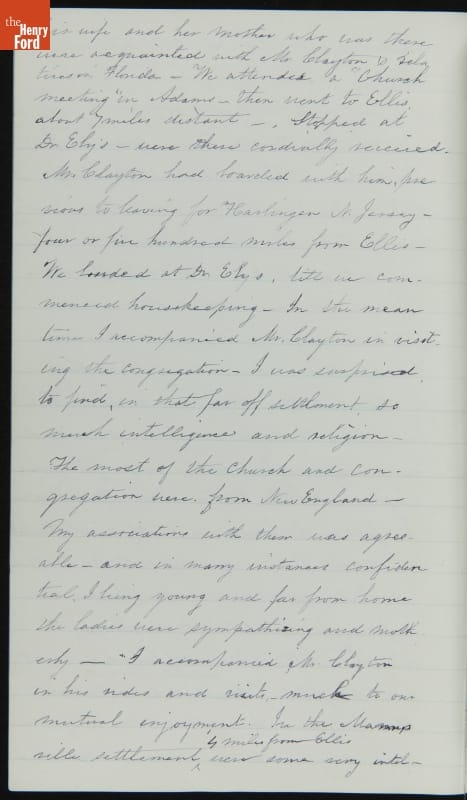 the Henry Ford
his wife and her mother who was there
were acquainted with Mr. Clayton's rela
tives in Florida - We attended a "Church
meeting" in Adams - then went to Ellis,
about 7 miles distant - Stopped at
Dr Ely's - were there cordially received.
Mr. Clayton had boarded with him, pre
vious to leaving for Harlingen N. Jersey -
four or five hundred miles from Ellis -
We boarded at Dr. Elys, till we com-
menced housekeeping - In the mean
time I accompanied Mr. Clayton in visit-
ing the congregation - I was surprised
to find, in that far off settlment, so
much intelligence and religion -
The most of the Church and con-
gregation were from New England -
My associations with them was agree-
able - and in many instances confiden
tial, I being young and far from home
the ladies were sympathizing and moth
erly - "I accompanied Mr. Clayton
in his rides and visits - much to our
mutual enjoyment. In the Manns
4 miles from Ellis
ville settlement, were some very intel-